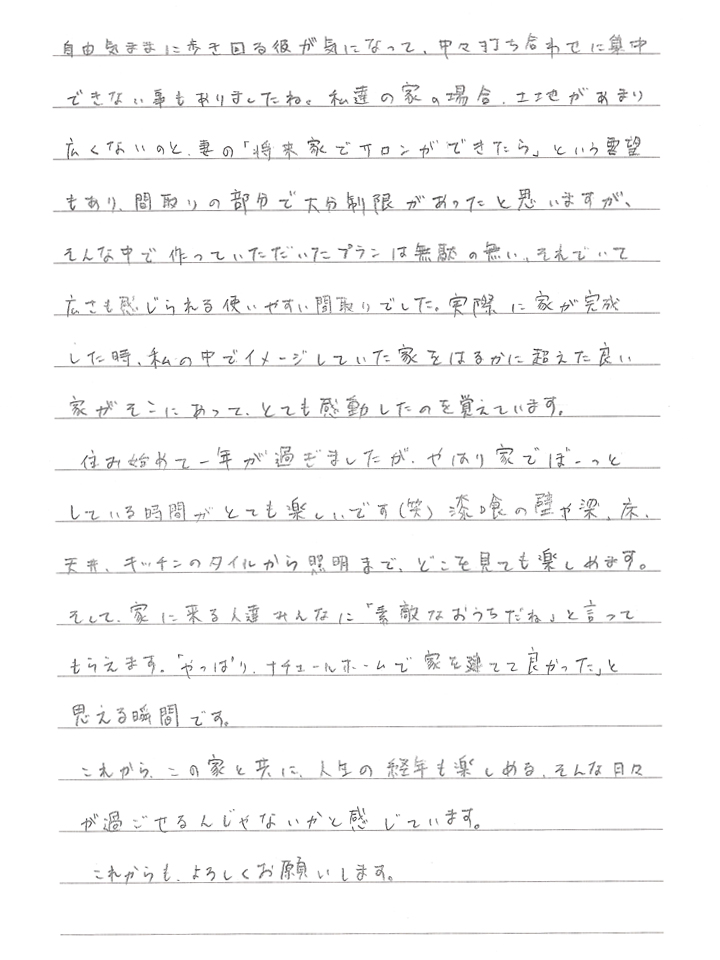 自由気ままに歩き回る彼が気になって、中々打ち合わせに集中
できない事もありましたね。私達の家の場合、土地があまり
広くないのと、妻の「将来家でサロンができたら」という要望
もあり、間取りの部分で大分制限があったと思いますが、
そんな中で作っていただいたプランは無駄の無い、それでいて
広さも感じられる使いやすい間取りでした。実際に家が完成
した時、私の中でイメージしていた家をはるかに超えた良い
家がそこにあって、とても感動したのを覚えています。
住み始めて一年が過ぎましたが、やはり家でぼーっと
している時間がとても楽しいです(笑)漆喰の壁や梁、床、
天井、キッチンのタイルから照明まで、どこを見ても楽しめます。
そして、家に来る人達みんなに「素敵なおうちだね」と言って
もらえます。「やっぱり、ナチュールホームで家を建てて良かった」と
思える瞬間です。
これから、この家と共に、人生の経年も楽しめる、そんな日々
が過ごせるんじゃないかと感じています。
これからも、よろしくお願いします。